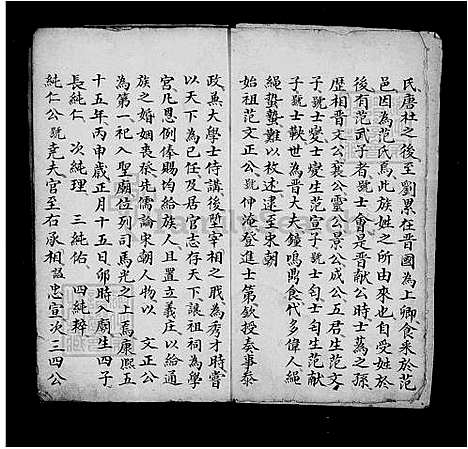 氏唐杜之後至劉累在晋國為上卿食采於范
邑因為范氏焉此族姓之所由來也自受姓於
後有范武子者號士會是晋献公時士蒍之孫
歴相晋文公襄公靈公景公成公五君生范文
子號士變士變生范宣子號士匄士匄生范献
子號士鞅世為晋大夫鐘鳴鼎食代多偉人繩
繩蟄蟄難以枚述逮至宋朝
始祖范文正公號仲淹登進士第欽授叅事叅
政兼大學士侍講後陞宰相之戝為秀才時嘗
以天下為已任及居官志存天下讓祖祠為學
宮凡恩例俸賜均給族人且置立義庄以給通
族之婚姻丧𦵏先儒論宋朝人物以 文正公
為第一祀入聖廟位列司馬光之上焉康熙五
十五年丙申歳正月十五日卯時入廟生四子
長純仁 次純理 三純佑 四純粹
純仁公號尭夫官至右丞相諡忠宣次三四公